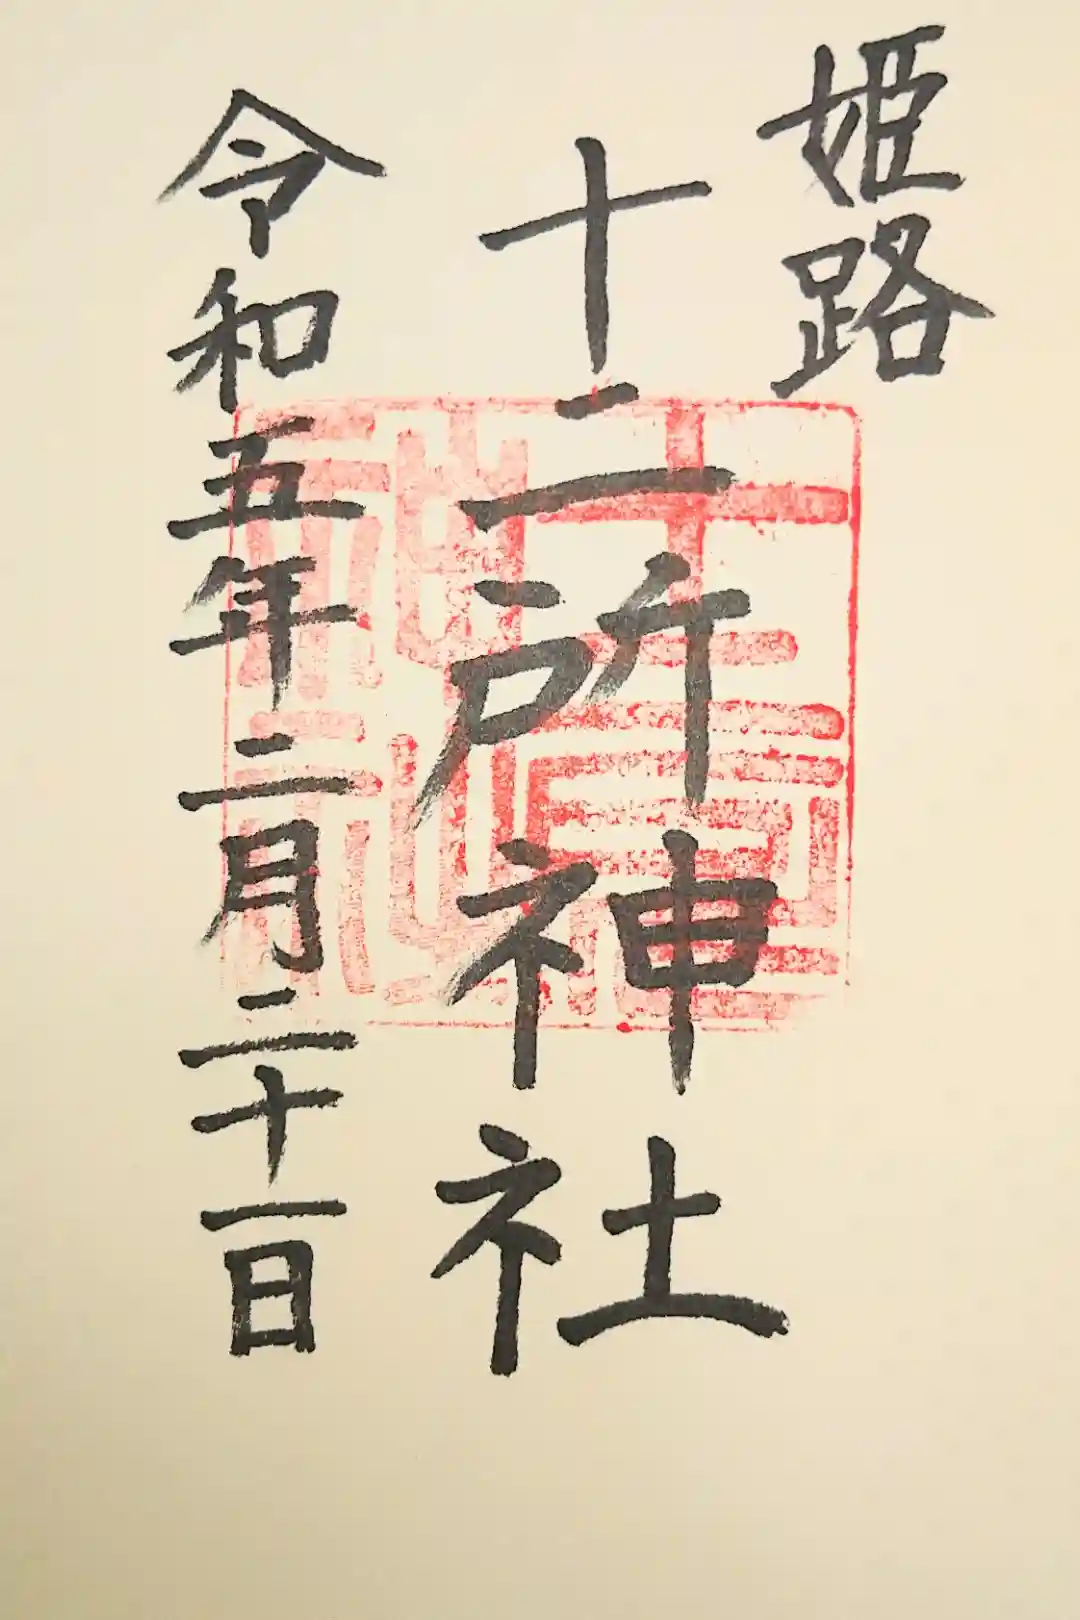 姫路
十二所神社
令和五年二月二十一日